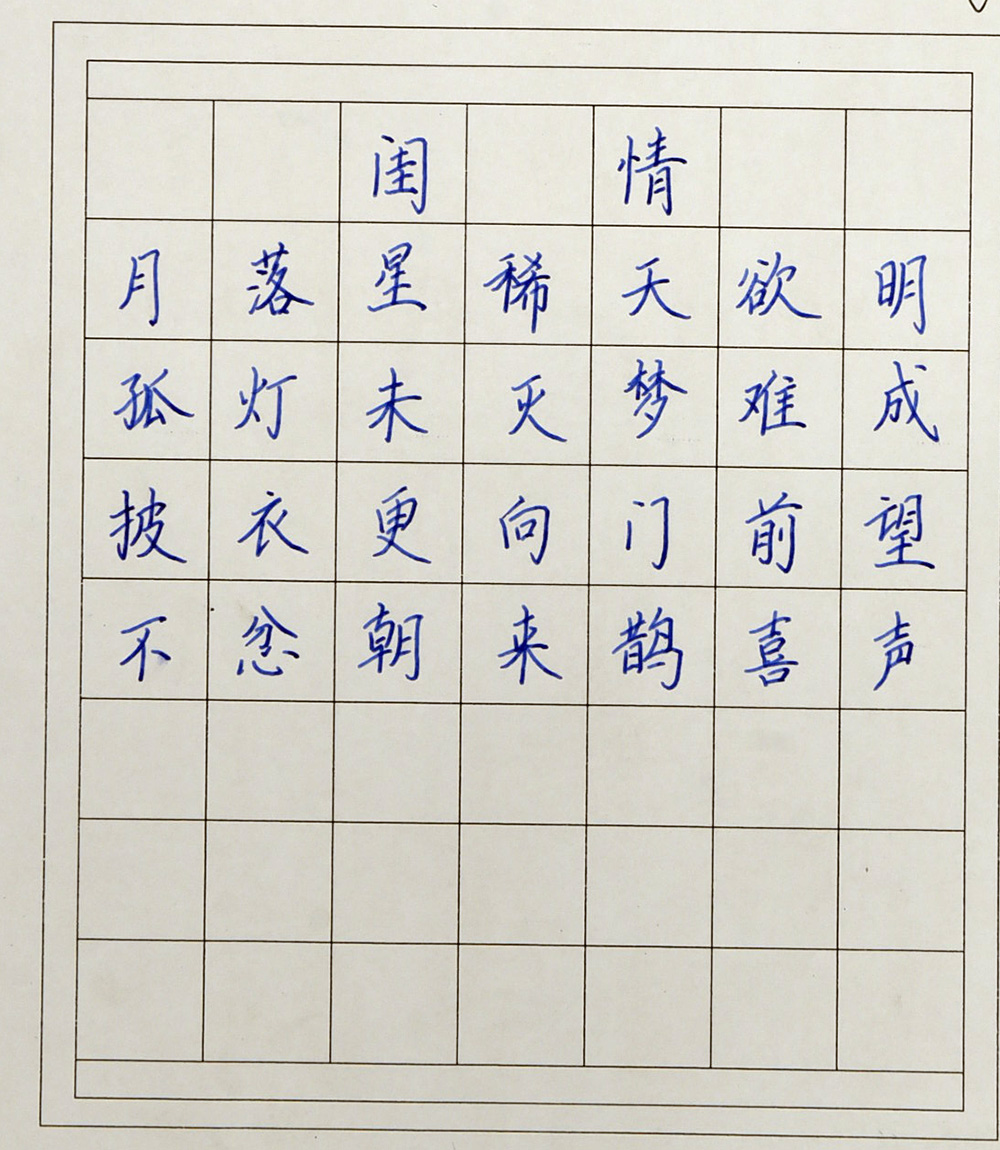 闺情
月落星稀天欲明
孤灯未灭梦难成
披衣更向门前望
不忿朝来鹊喜声